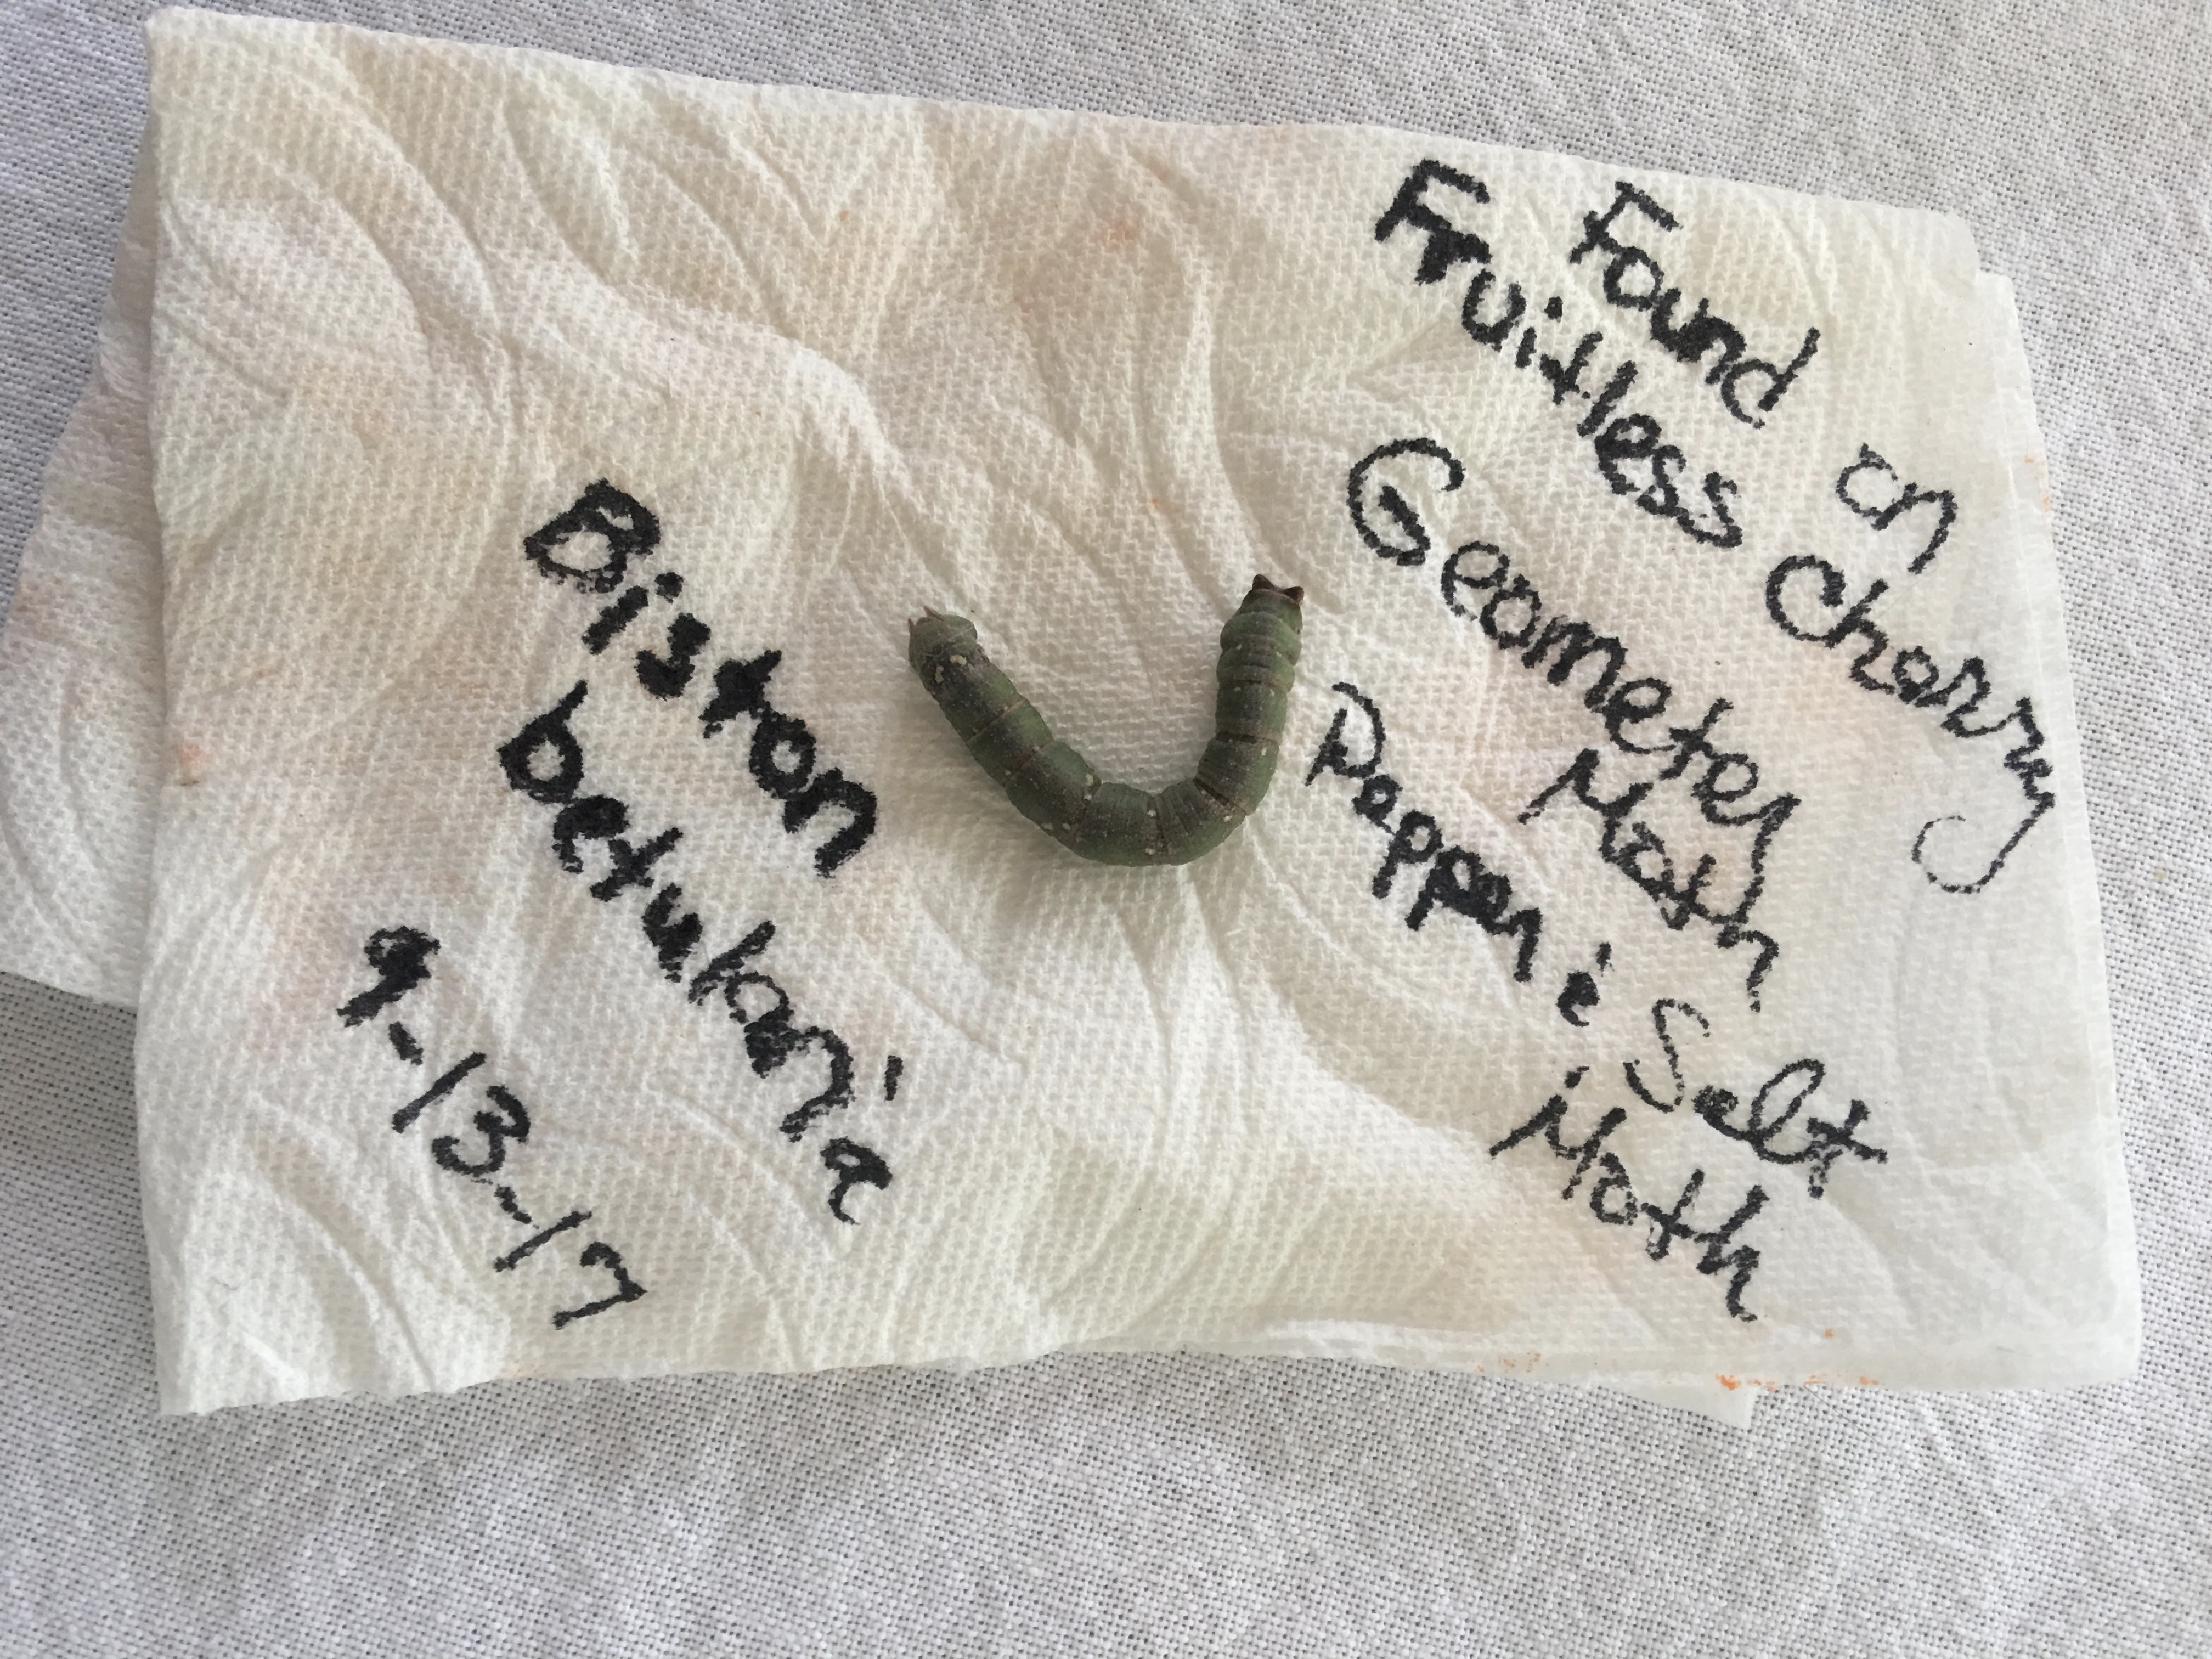 Found on
Fruitless Cherry
Geometer
Moth
Pepper & Salt
Moth
Biston
betularia
9-13-17